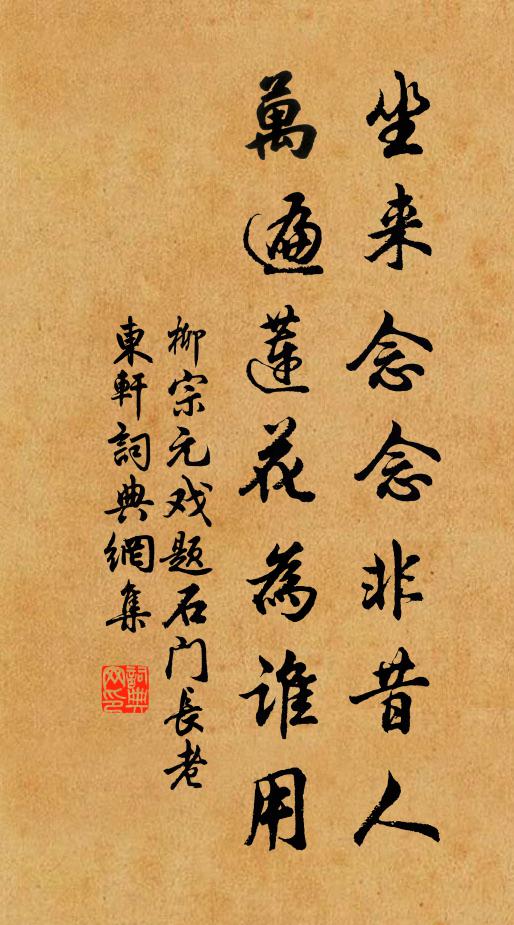 坐来念念非昔人
萬遍蓮花為誰用
柳宗元戏题石门長老
東軒詞典網集
詞典網印